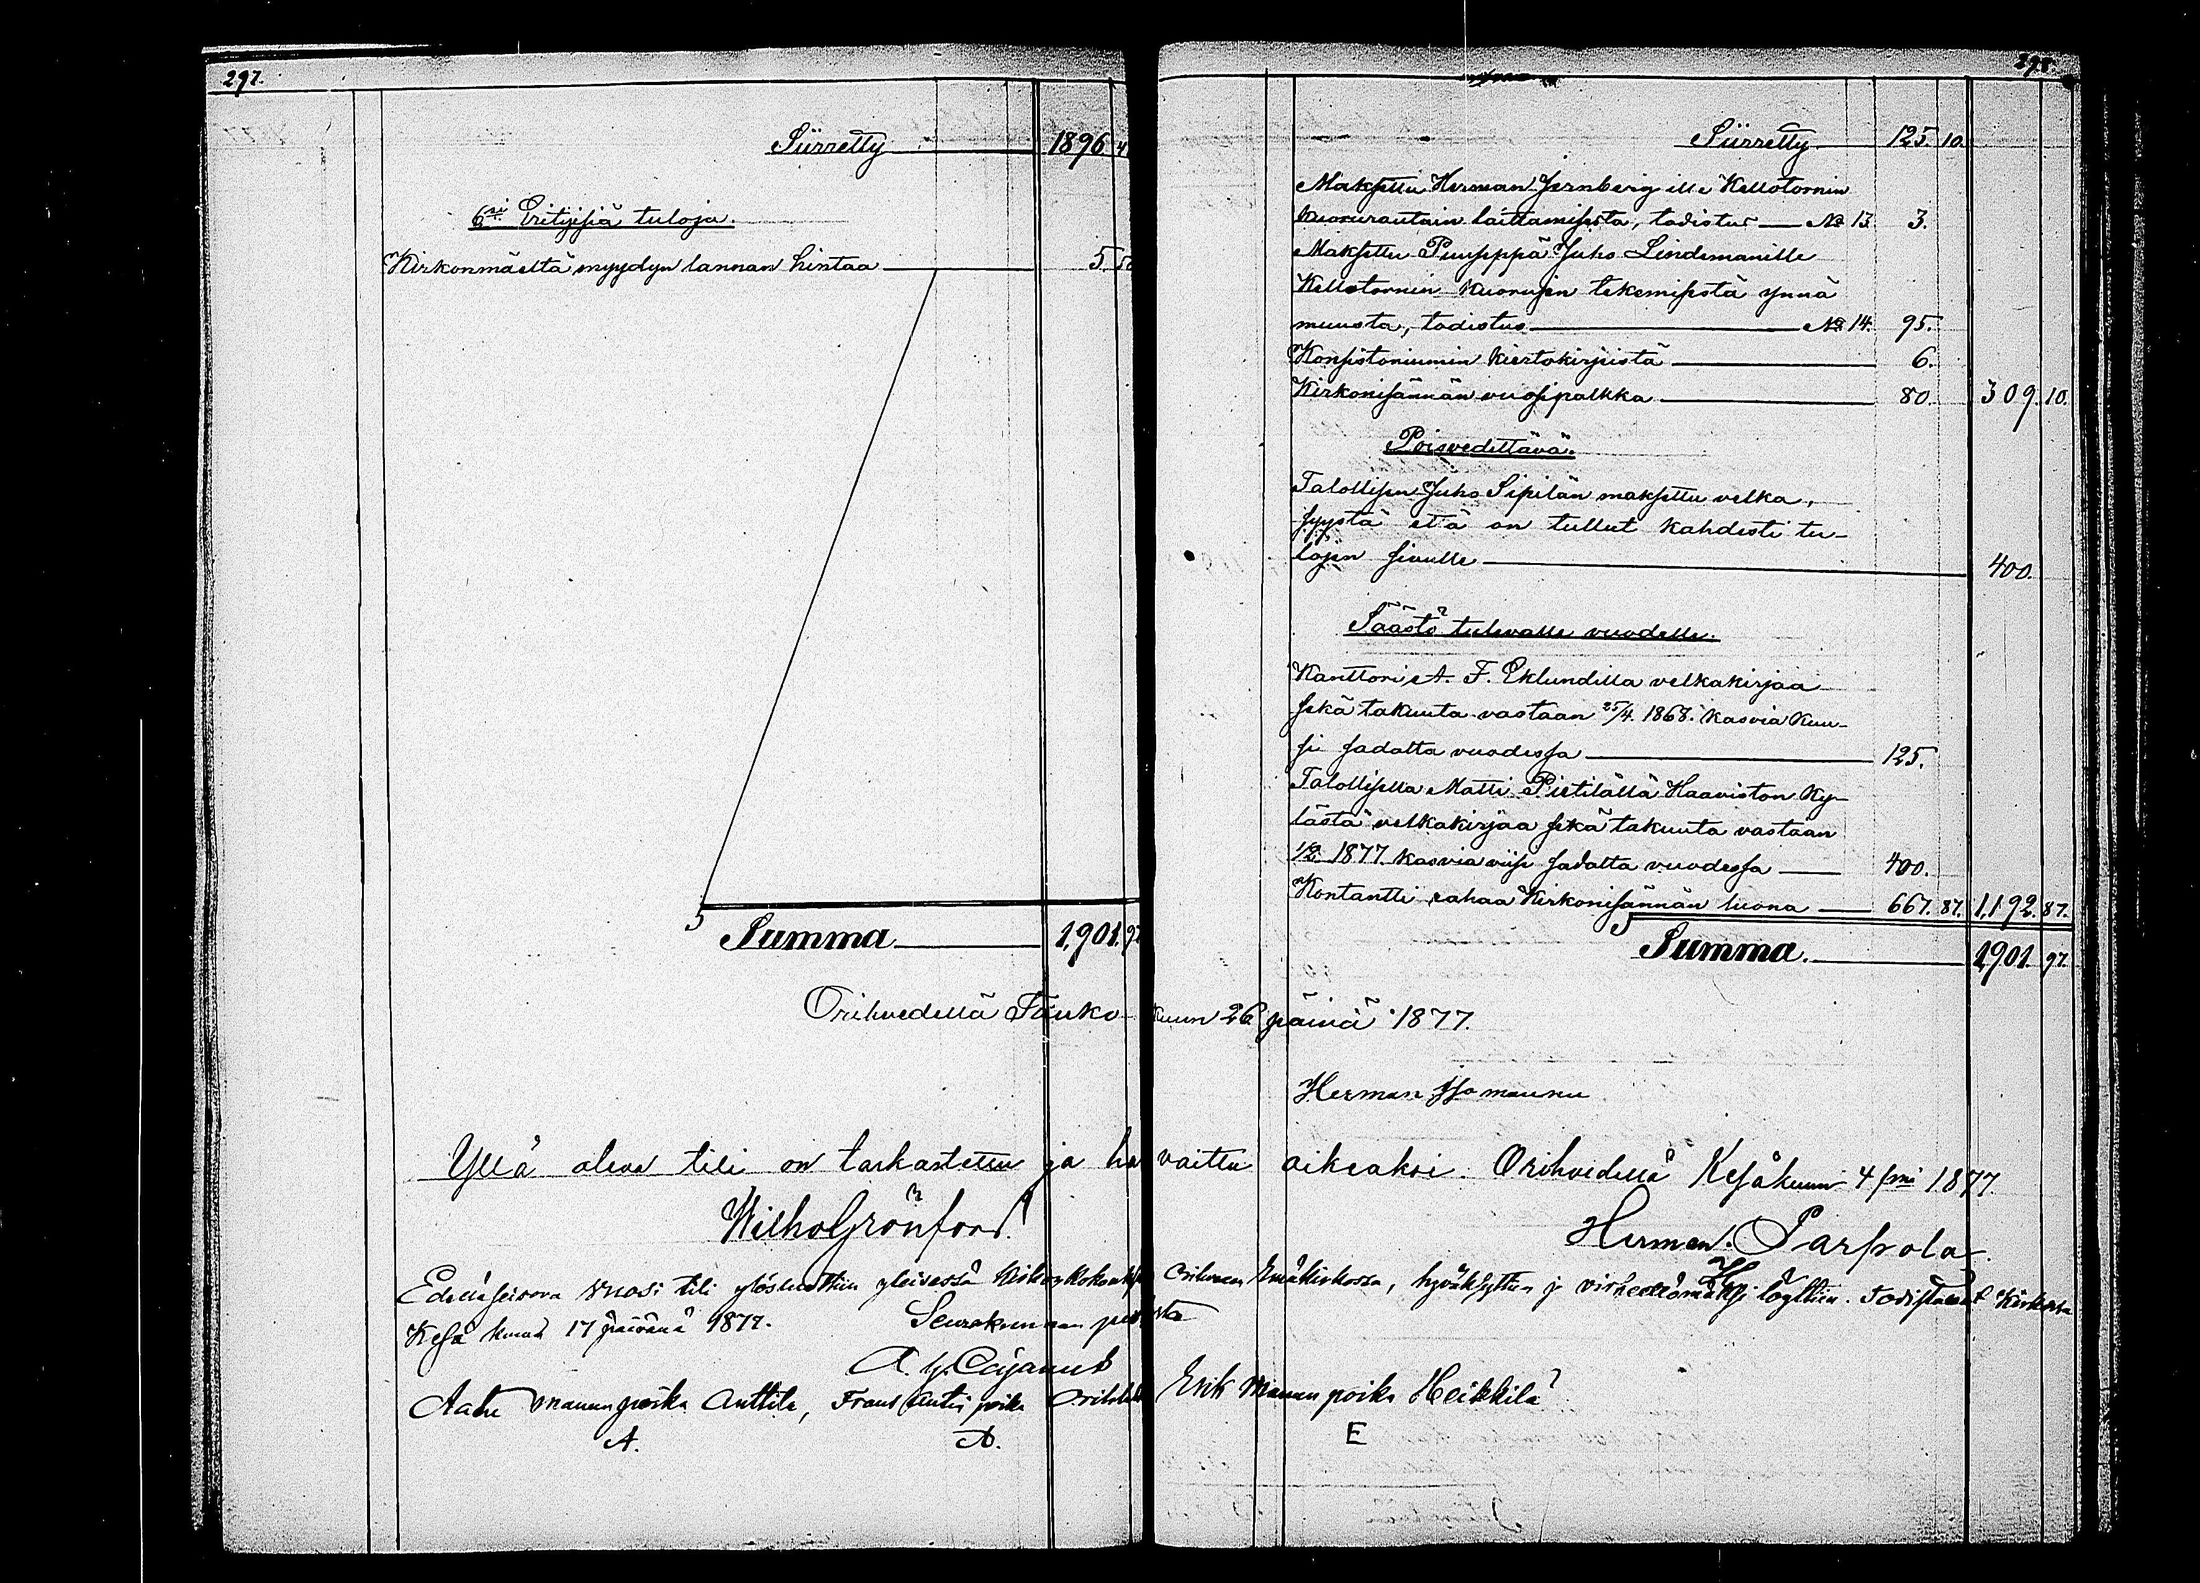 297.
Siirretty 1896 4
6si Erityisiä tuloja.
Kirkonmäeltä myydyn lannan hintaa 5 50
Summa 1,901. 97
298.
Siirretty 125. 10.
Maksettu Herman Jernberg ille Kellotornin
kuorurautain laittamisesta, todistus No 13 3.
Maksettu Puuseppä Juho Lindemanille
Kellotornin kuorujen tekemisestä ynnä
muusta, todistus No 14. 95.
Konsistoriumin kiertokirjeistä 6.
Kirkonisännän vuosipalkka 80. 309. 10.
Poisvedettävä.
Talollisen Juho Sipilän maksettu velka,
syystä että on tullut kahdesti tu-
lojen sivulle 400.
Säästö tulevalle vuodelle.
Kanttori A. F. Eklundilla velkakirjaa
sekä takuuta vastaan 25/4 1868. kasvia kuu-
si sadalta vuodessa 125.
Talollisella Matti Pietilällä Haaviston Ky-
lästä velkakirjaa sekä takuuta vastaan
1/2 1877 kasvia viisi sadalta vuodessa 400.
Kontantti rahaa Kirkonisännän luona 667. 87. 1,192. 87.
Summa. 1,901. 97.
Orihvedellä Toukokuun 26 päivä 1877.
Herman Iso maunu
Yllä oleva tili on tarkastettu ja havaittu oikeaksi. Orihvedellä Kesäkuun 4 1877.
Wilho Grönfors. Herman Parpola
Edelläseisova vuosi tili ylösluettiin yleisessä Kirkonkokouksessa Orihveden Emäkirkossa, hyväksyttiin ja virheettömäksi löyttiin. Todistavat Kirkossa
Kesä kuun 17 päivänä 1877. Seurakunnan puolesta
A. G. Cajanus
Aatu Maunun poika Anttila, Frans Antin poika Erik Maunun poika Heikkilä
A. A. E